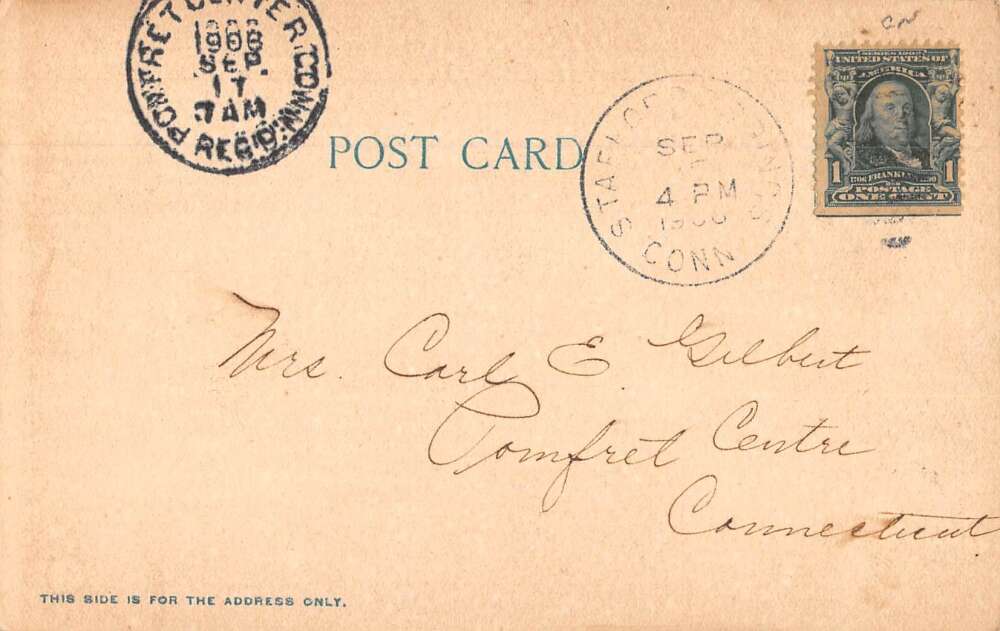 POMFRET CENTER, CONN.
1906
SEP
17
7 AM
REC'D.
POST CARD
STAFFORD SPRINGS
SEP
4 PM
1906
CONN
SERIES 1902
UNITED STATES OF
AMERICA
1 1
1706 FRANKLIN 1790
POSTAGE
ONE CENT
Mrs. Carl E. Gilbert
Pomfret Centre
Connecticut
THIS SIDE IS FOR THE ADDRESS ONLY.